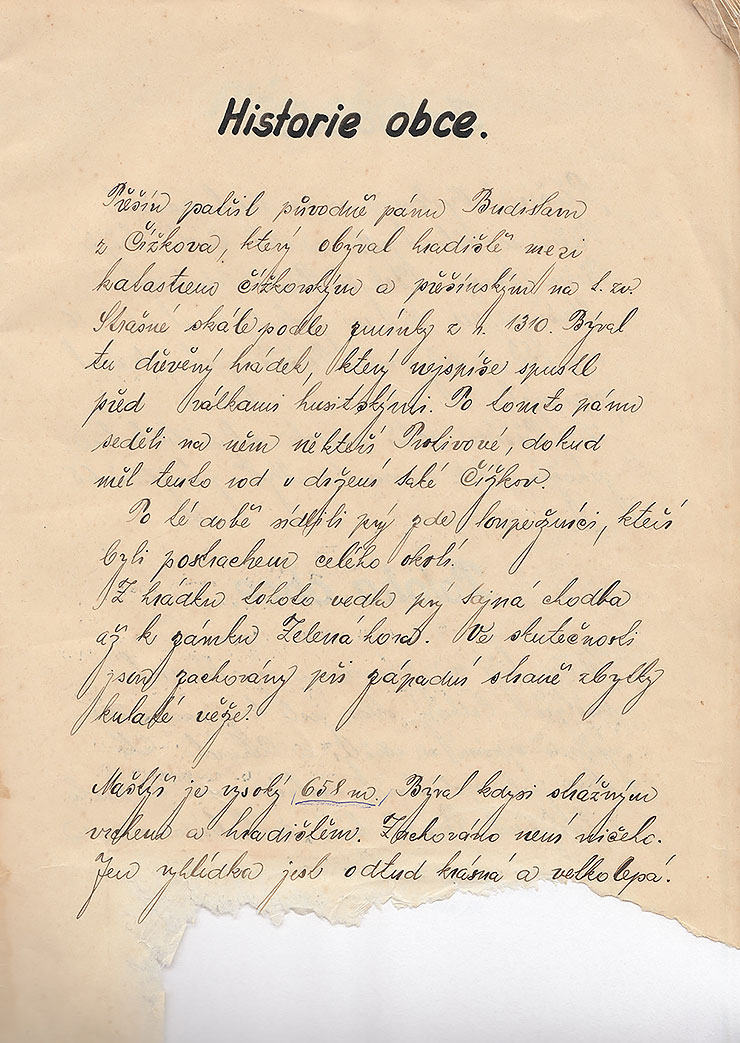 Historie obce.
Přešín patřil původně pánu Budislavu
z Čížkova, který obýval hradiště mezi
katastrem čížkovským a přešínským na t. zv.
Strašné skále podle zmínky z r. 1310. Býval
tu dřevěný hrádek, který nejspíše spustl
před válkami husitskými. Po tomto pánu
seděli na něm někteří Protivové, dokud
měl tento rod v držení také Čížkov.
Po té době sídlili prý zde loupežníci, kteří
byli postrachem celého okolí.
Z hrádku tohoto vedla prý tajná chodba
až k zámku Zelená hora. Ve skutečnosti
jsou zachovány při západní straně zbytky
kulaté věže.
je vysoký 658 m. Býval kdysi strážným
vrchem a hradištěm. Zachováno není ničeho.
Jen vyhlídka jest odtud krásná a velkolepá.